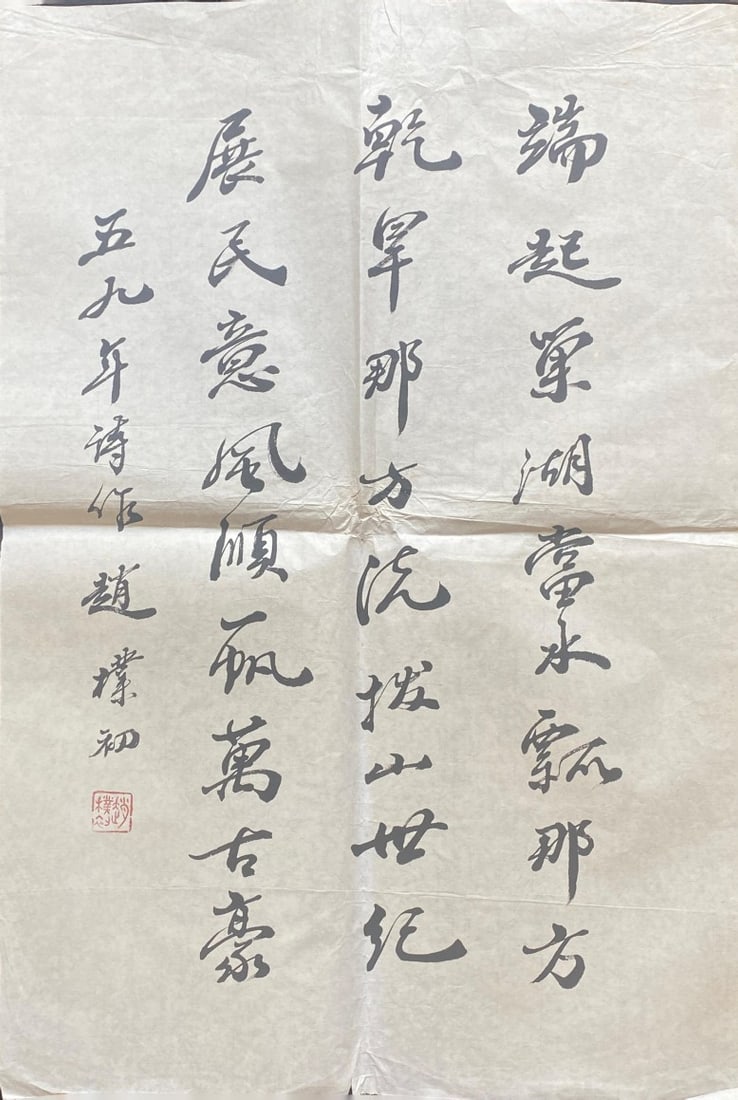 端起巢湖當水瓢那方
乾旱那方浇拔山世紀
展民意風順一帆萬古豪
五九年詩作 趙樸初
趙樸初